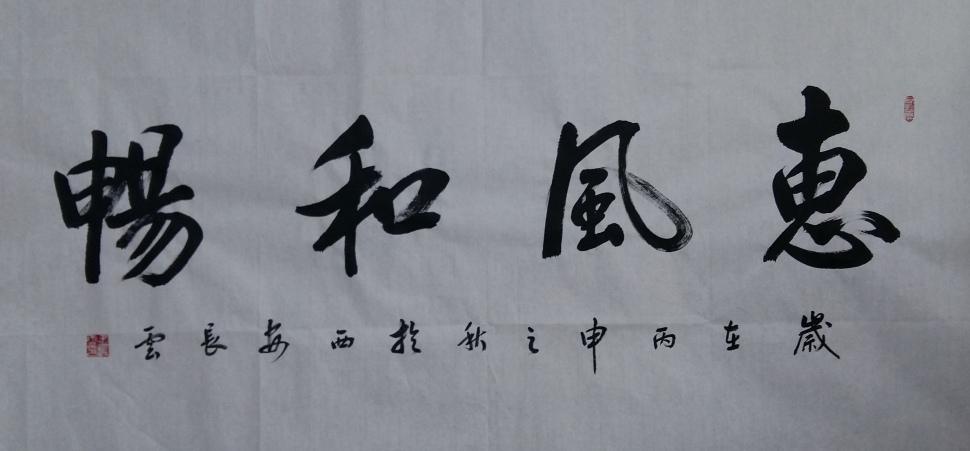 惠風和暢
歲在丙申之秋於西安長雲